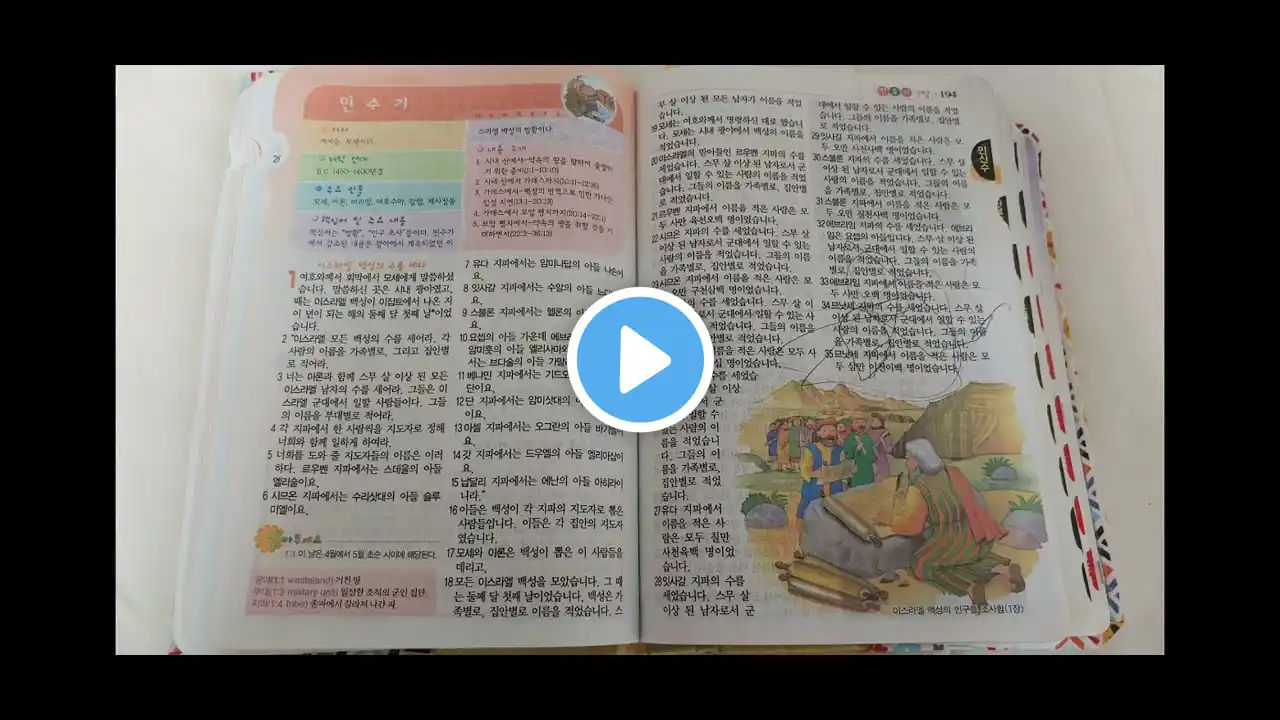 민수기
Numbers
저자
저자는 모세이다.
저작 연대
B.C. 1450-1400년경
주요 인물
모세, 아론, 미리암, 여호수아, 갈렙, 제사장들
핵심어 및 주요 내용
핵심어는 "방황", "인구 조사"등이다. 민수기
에서 강조된 내용은 광야에서 계속되었던 이
스라엘 백성의 방황이다.
내용 소개
1. 시내 산에서-약속의 땅을 향하여 출발하
기 위한 준비(1:1-10:10)
2. 시내 산에서 가데스까지(10:11-12:16)
3. 가데스에서-백성의 반역으로 인한 가나안
입성 지연(13:1-20:13)
4. 가데스에서 모압 평지까지(20:14-22:1)
5. 모압 평지에서-약속의 땅을 취할 것을 기
대하면서(22:2-36:13)
이스라엘 백성의 수를 세다
1 여호와께서 회막에서 모세에게 말씀하셨
습니다. 말씀하신 곳은 시내 광야였고,
때는 이스라엘 백성이 이집트에서 나온 지
이 년이 되는 해의 둘째 달 첫째 날*이었
습니다.
2 "이스라엘 모든 백성의 수를 세어라. 각
사람의 이름을 가족별로, 그리고 집안별
로 적어라.
3 너는 아론과 함께 스무 살 이상 된 모든
이스라엘 남자의 수를 세어라. 그들은 이
스라엘 군대에서 일할 사람들이다. 그들
의 이름을 부대별로 적어라.
4 각 지파에서 한 사람씩을 지도자로 정해
너희와 함께 일하게 하여라.
5 너희를 도와 줄 지도자들의 이름은 이러
하다. 르우벤 지파에서는 스데울의 아들
엘리술이요,
6 시므온 지파에서는 수리삿대의 아들 슬루
미엘이요,
1:1 이 날은 4월에서 5월 초순 사이에 해당된다.
광야(1:1 wasteland) 거친 땅.
부대(1:3 military unit) 일정한 조직의 군인 집단.
지파(1:4 tribe) 종파에서 갈라져 나간 파.
7 유다 지파에서는 암미나답의 아들 나손이
요,
8 잇사갈 지파에서는 수알의 아들
요,
9 스불론 지파에서는 헬론의 아
요,
10 요셉의 아들 가운데 에브라
암미훗의 아들 엘리사마와
서는 브다술의 아들 가말
11 베냐민 지파에서는 기드오
단이요,
12 단 지파에서는 암미삿대의 아
이요,
13 아셀 지파에서는 오그란의 아들 바기엘이
요,
14 갓 지파에서는 드우엘의 아들 엘리아삽이
요,
15 납달리 지파에서는 에난의 아들 아히라이
니라."
16 이들은 백성이 각 지파의 지도자로 뽑은
사람들입니다. 이들은 각 집안의 지도자
였습니다.
17 모세와 아론은 백성이 뽑은 이 사람들을
데리고,
18 모든 이스라엘 백성을 모았습니다. 그 때
는 둘째 달 첫째 날이었습니다. 백성은 가
족별로, 집안별로 이름을 적었습니다. 스
194
무 살 이상 된 모든 남자가 이름을 적었
습니다.
19 모세는 여호와께서 명령하신 대로 했습니
다. 모세는 시내 광야에서 백성의 이름을
적었습니다.
20 이스라엘의 맏아들인 르우벤 지파의 수를
세었습니다. 스무 살 이상 된 남자로서 군
대에서 일할 수 있는 사람의 이름을 적었습니
다. 그들의 이름을 가족별로, 집안별
로 적었습니다.
21 르우벤 지파에서 이름을 적은 사람은 모
두 사만 육천오백 명이었습니다.
22 시므온 지파의 수를 세었습니다. 스무 살
이상 된 남자로서 군대에서 일할 수 있는
사람의 이름을 적었습니다. 그들의 이름
을 가족별로, 집안별로 적었습니다.
23 시므온 지파에서 이름을 적은 사람은 모
두 오만 구천삼백 명이었습니다.
의 수를 세었습니다. 스무 살 이
로서 군대에서 일할 수 있는 사
적었습니다. 그들의 이름을
집안별로 적었습니다.
이름을 적은 사람은 모두 사
십 명이었습니다.
수를 세었습
살 이상
군
일할 수
있는 사람의 이
름을 적었습니
다. 그들의 이
름을 가족별로,
집안별로 적었
습니다.
27 유다 지파에서
이름을 적은 사
람은 모두 칠만
사천육백 명이었
습니다.
28 잇사갈 지파의 수를
세었습니다. 스무 살
이상 된 남자로서 군
대에서 일할 수 있는 사람의 이름을 적었
습니다. 그들의 이름을 가족별로, 집안별
로 적었습니다.
29 잇사갈 지파에서 이름을 적은 사람은 모
두 오만 사천사백 명이었습니다.
30 스불론 지파의 수를 세었습니다. 스무 살
이상 된 남자로서 군대에서 일할 수 있는
사람의 이름을 적었습니다. 그들의 이름
을 가족별로, 집안별로 적었습니다.
31 스불론 지파에서 이름을 적은 사람은 모
두 오만 칠천사백 명이었습니다.
32 에브라임 지파의 수를 세었습니다. 에브라
임은 요셉의 아들입니다. 스무 살 이상 된
남자로서 군대에서 일할 수 있는 사람의
이름을 적었습니다. 그들의 이름을 가족
별로, 집안별로 적었습니다.
33 에브라임 지파에서 이름을 적은 사람은 모
두 사만 오백 명이었습니다.
34 므낫세 지파의 수를 세었습니다. 스무 살
이상 된 남자로서 군대에서 일할 수 있는
사람의 이름을 적었습니다. 그들의 이름
을 가족별로, 집안별로 적었습니다.
35 므낫세 지파에서 이름을 적은 사람은 모
두 삼만 이천이백 명이었습니다.
이스라엘 백성의 인구를 조사함(1장)
민신수